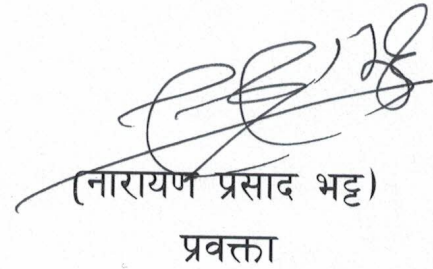 (नारायण प्रसाद भट्ट)
प्रवक्ता